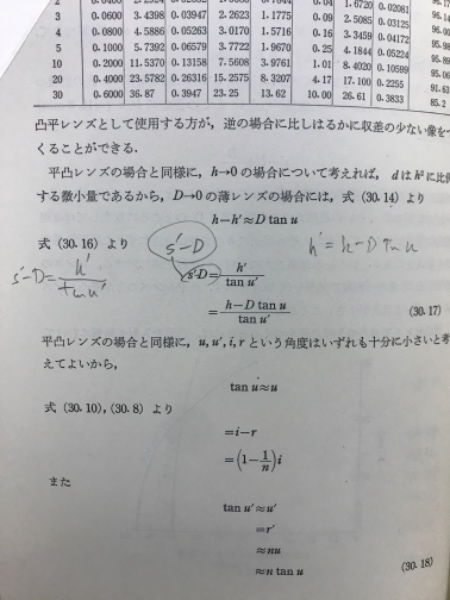 2
3 0.0600 3.4398 0.03947 2.2623 1.1775 0.09 2.5085 0.03125
4 0.0800 4.5886 0.05263 3.0170 1.5716 0.16 3.3459 0.04172
5 0.1000 5.7392 0.06579 3.7722 1.9670 0.25 4.1844 0.05224
10 0.2000 11.5370 0.13158 7.5608 3.9761 1.01 8.4020 0.10599
20 0.4000 23.5782 0.26316 15.2575 8.3207 4.17 17.100 0.2255
30 0.6000 36.87 0.3947 23.25 13.62 10.00 26.61 0.3833 85.2
凸平レンズとして使用する方が，逆の場合に比しはるかに収差の少ない像をつ
くることができる．
平凸レンズの場合と同様に，h→0 の場合について考えれば， d は h² に比例
する微小量であるから，D→0 の薄レンズの場合には，式 (30.14) より
h−h′≈D tan u
式 (30.16) より s′−D h′=h−D tan u
s′−D=h′/tan u′
s′D=h′/tan u′
=(h−D tan u)/tan u′ (30.17)
平凸レンズの場合と同様に，u, u′, i, r という角度はいずれも十分に小さいと考
えてよいから，
tan u≈u
式 (30.10), (30.8) より
=i−r
=(1−1/n)i
また
tan u′≈u′
=r′
≈nu
≈n tan u (30.18)